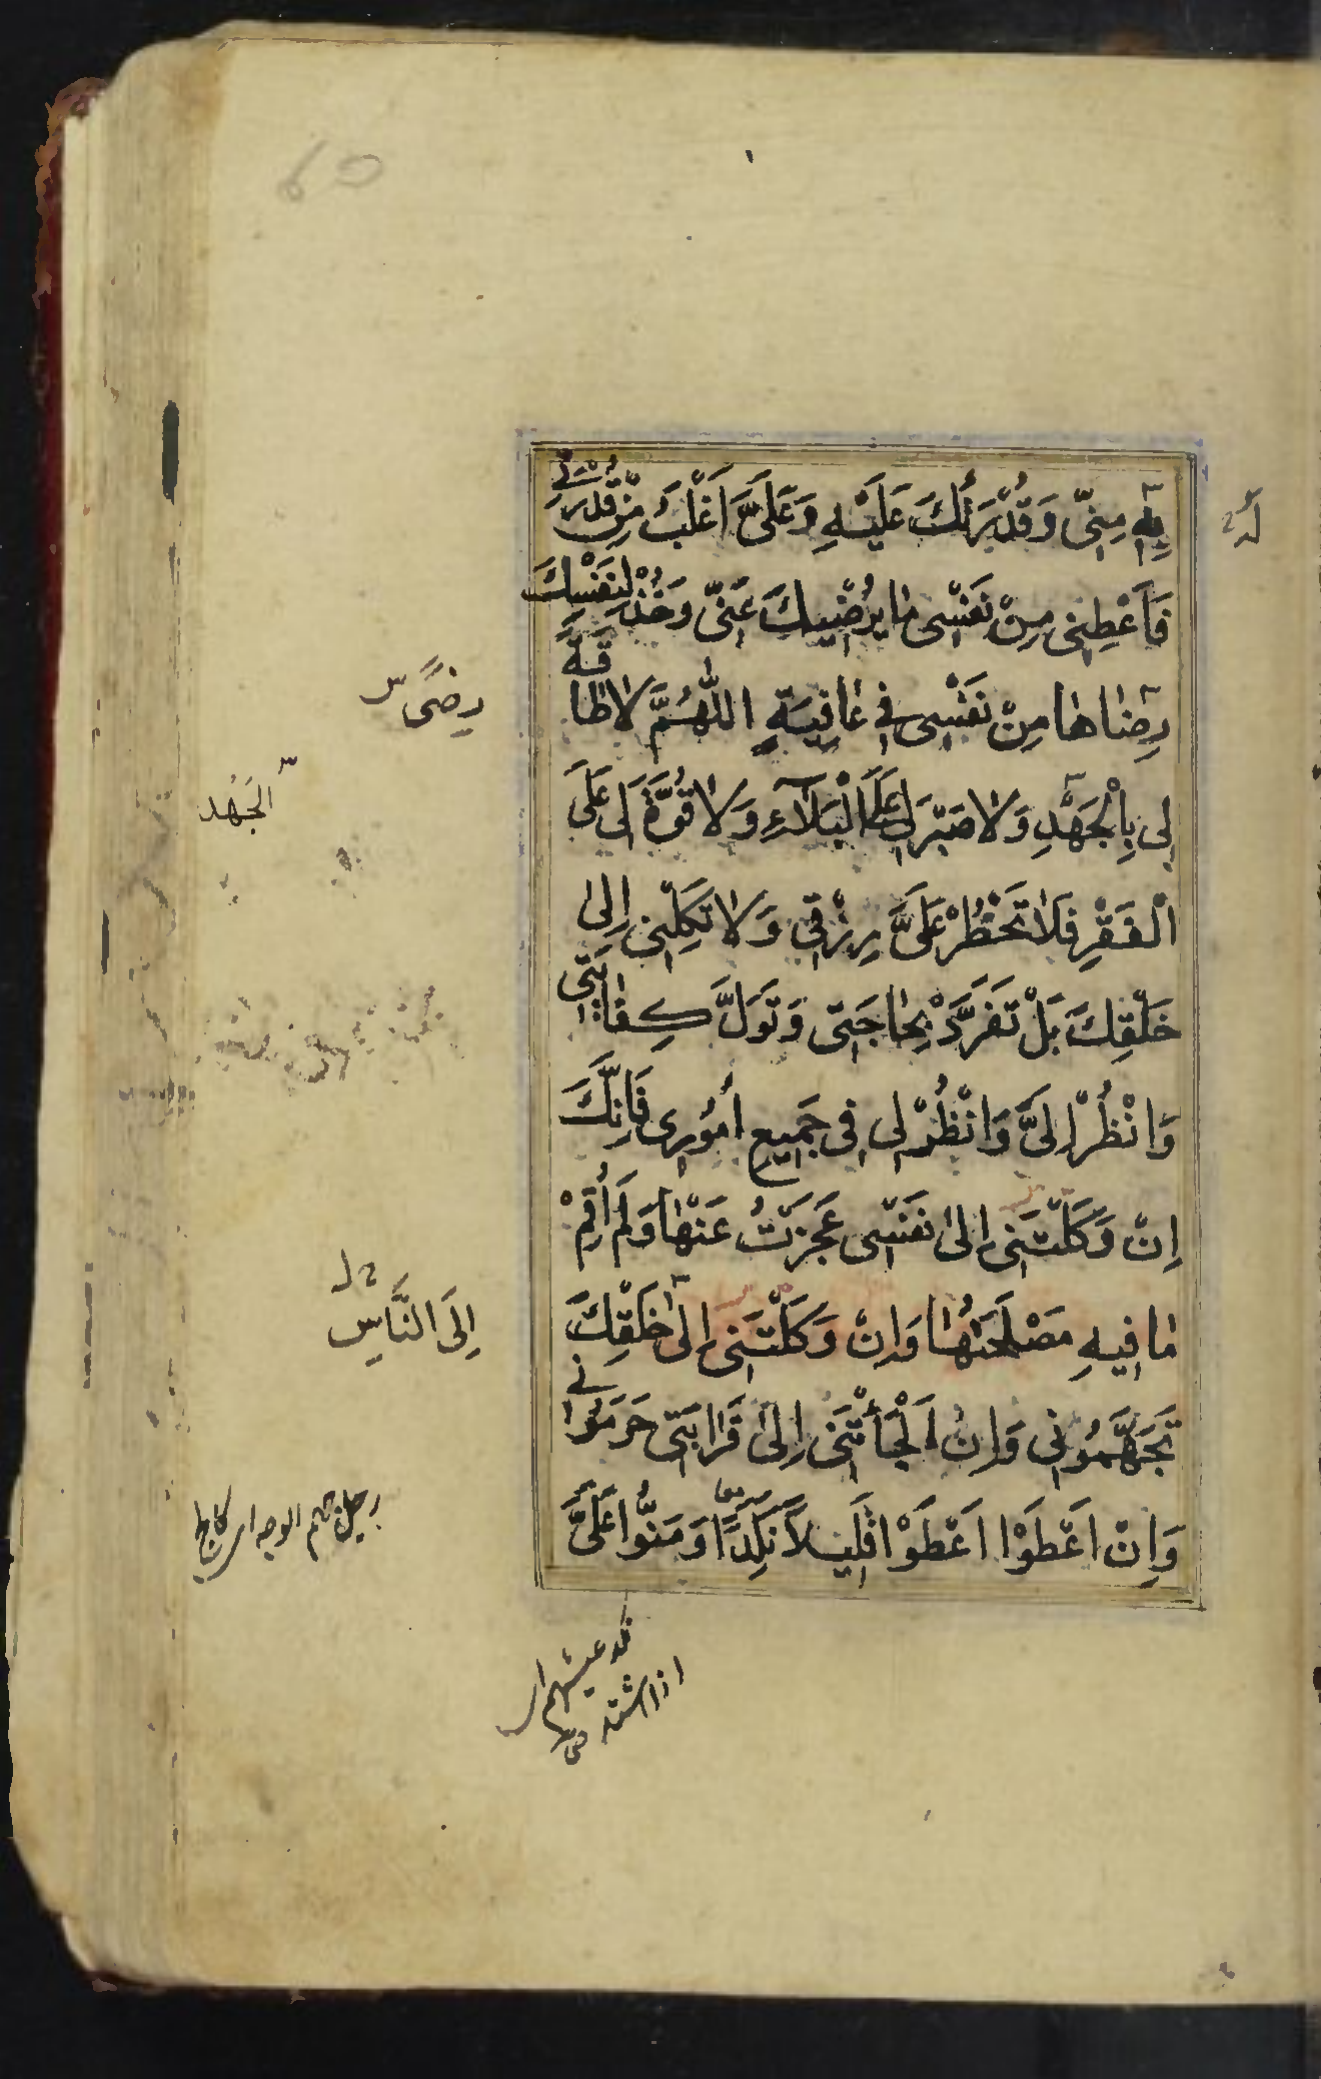 بِهِ مِنِّی وَقُدْرَتُكَ عَلَیْهِ وَعَلَیَّ اَغْلَبُ مِنْ قُدْرَتِی
فَاَعْطِنِی مِنْ نَفْسِی مٰا یُرْضِیكَ عَنِّی وَخُذْ لِنَفْسِكَ
رِضٰاهٰا مِنْ نَفْسِی فِی عٰافِیَةٍ اللّٰهُمَّ لاٰ طٰاقَةَ
لِی بِالْجَهْدِ وَلاٰ صَبْرَ لِی عَلَی الْبَلاٰۤءِ وَلاٰ قُوَّةَ لِی عَلَی
الْفَقْرِ فَلاٰ تَحْظُرْ عَلَیَّ رِزْقِی وَلاٰ تَكِلْنِی اِلیٰ
خَلْقِكَ بَلْ تَفَرَّدْ بِحٰاجَتِی وَتَوَلَّ كِفٰایَتِی
وَانْظُرْ اِلَیَّ وَانْظُرْ لِی فِی جَمِیعِ أُمُورِی فَاِنَّكَ
اِنْ وَكَلْتَنِی اِلیٰ نَفْسِی عَجَزْتُ عَنْهٰا وَلَمْ أُقِمْ
مٰا فِیهِ مَصْلَحَتُهٰا وَاِنْ وَكَلْتَنِی اِلیٰ خَلْقِكَ
تَجَهَّمُونِی وَاِنْ اَلْجَأْتَنِی اِلیٰ قَرٰابَتِی حَرَمُونِی
وَاِنْ اَعْطَوْا اَعْطَوْا قَلِیلاً نَكِدًا وَمَنُّوا عَلَیَّ
رِضًی س
الْجَهْد
اِلَی النَّاسِ
رجل جهم الوجه ای كالح
نكد عیشهم ای
اذا اشتد ص